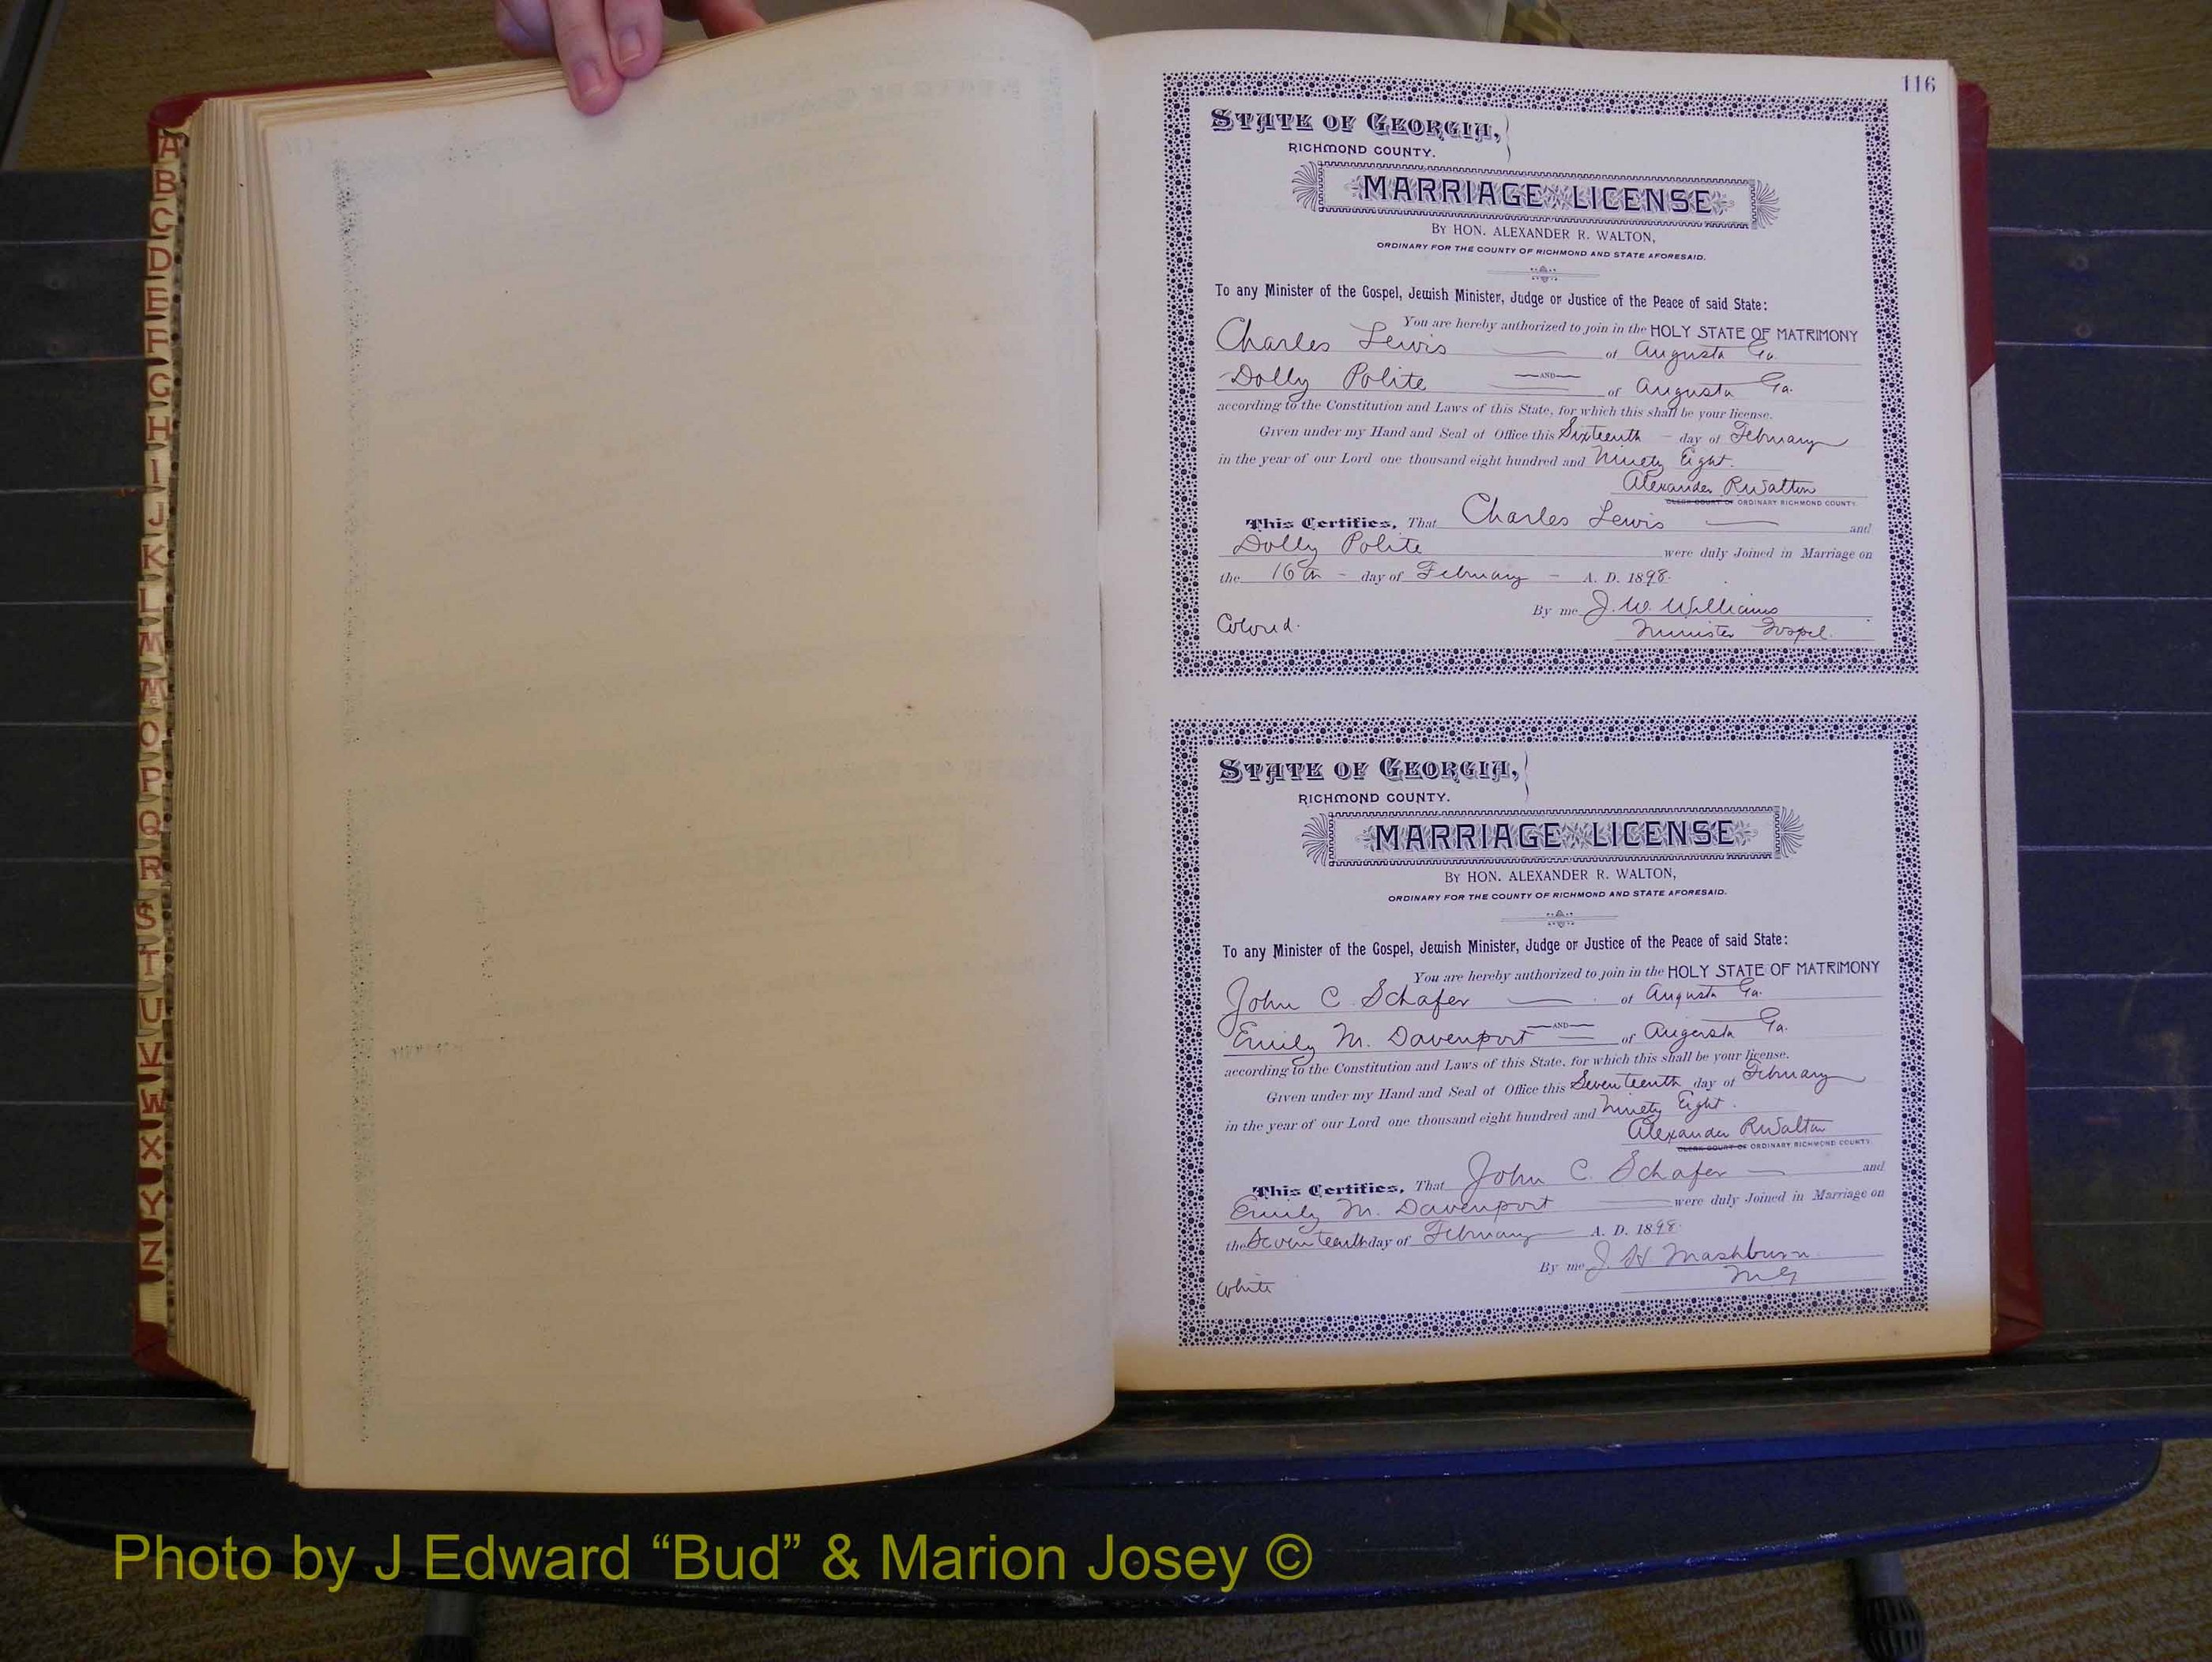 A
B
C
D
E
F
G
H
I
J
K
L
M
Mc
O
P
Q
R
S
T
U
V
W
X
Y
Z
116
STATE OF GEORGIA,
RICHMOND COUNTY.
MARRIAGE LICENSE
BY HON. ALEXANDER R. WALTON,
ORDINARY FOR THE COUNTY OF RICHMOND AND STATE AFORESAID.
To any Minister of the Gospel, Jewish Minister, Judge or Justice of the Peace of said State:
You are hereby authorized to join in the HOLY STATE OF MATRIMONY
Charles Lewis of Augusta Ga.
AND
Dolly Polite of Augusta Ga.
according to the Constitution and Laws of this State, for which this shall be your license.
Given under my Hand and Seal of Office this Sixteenth day of February
in the year of our Lord one thousand eight hundred and Ninety Eight.
Alexander R Walton
CLERK COURT OF ORDINARY RICHMOND COUNTY.
This Certifies, That Charles Lewis and
Dolly Polite were duly Joined in Marriage on
the 16th day of February A. D. 1898.
By me J. W. Williams
Colored. Minister Gospel.
STATE OF GEORGIA,
RICHMOND COUNTY.
MARRIAGE LICENSE
BY HON. ALEXANDER R. WALTON,
ORDINARY FOR THE COUNTY OF RICHMOND AND STATE AFORESAID.
To any Minister of the Gospel, Jewish Minister, Judge or Justice of the Peace of said State:
You are hereby authorized to join in the HOLY STATE OF MATRIMONY
John C. Schafer of Augusta Ga.
AND
Emily M. Davenport of Augusta Ga.
according to the Constitution and Laws of this State, for which this shall be your license.
Given under my Hand and Seal of Office this Seventeenth day of February
in the year of our Lord one thousand eight hundred and Ninety Eight.
Alexander R Walton
CLERK COURT OF ORDINARY RICHMOND COUNTY.
This Certifies, That John C. Schafer and
Emily M. Davenport were duly Joined in Marriage on
the Seventeenth day of February A. D. 1898.
By me J. H Mashburn
White M G
Photo by J Edward “Bud” & Marion Josey ©